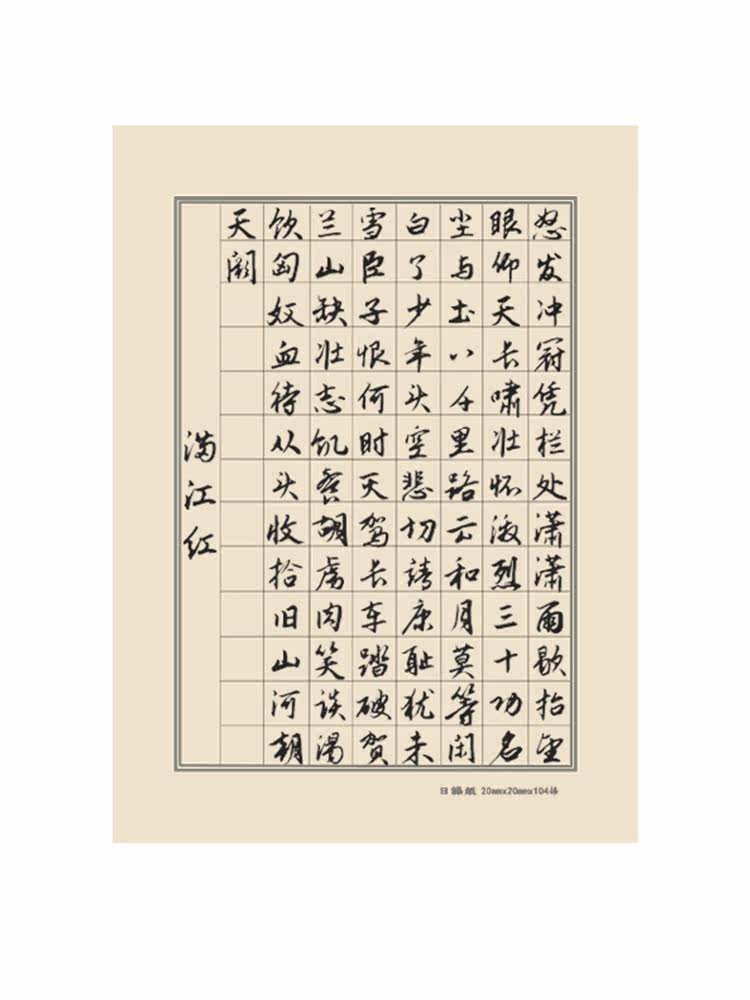 怒发冲冠凭栏处潇潇雨歇抬望
眼仰天长啸壮怀激烈三十功名
尘与土八千里路云和月莫等闲
白了少年头空悲切靖康耻犹未
雪臣子恨何时灭驾长车踏破贺
兰山缺壮志饥餐胡虏肉笑谈渴
饮匈奴血待从头收拾旧山河朝
天阙
满江红
20mmx20mmx104格